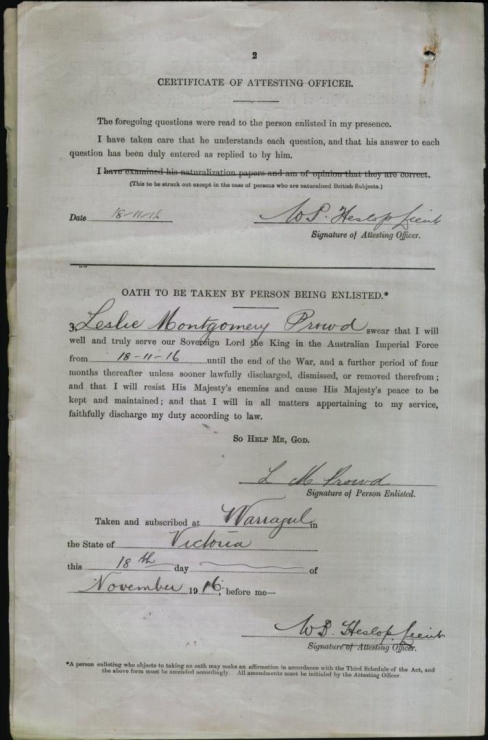 2
CERTIFICATE OF ATTESTING OFFICER.
The foregoing questions were read to the person enlisted in my presence.
I have taken care that he understands each question, and that his answer to each
question has been duly entered as replied to by him.
I have examined his naturalization papers and am of opinion that they are correct.
(This to be struck out except in the case of persons who are naturalized British Subjects.)
Date 18-11-16 Heslop Lieut
Signature of Attesting Officer.
OATH TO BE TAKEN BY PERSON BEING ENLISTED.*
3. Leslie Montgomery Prowd swear that I will
well and truly serve our Sovereign Lord the King in the Australian Imperial Force
from 18-11-16 until the end of the War, and a further period of four
months thereafter unless sooner lawfully discharged, dismissed, or removed therefrom;
and that I will resist His Majesty's enemies and cause His Majesty's peace to be
kept and maintained; and that I will in all matters appertaining to my service,
faithfully discharge my duty according to law.
SO HELP ME, GOD.
L M Prowd
Signature of Person Enlisted.
Taken and subscribed at Warragul in
the State of Victoria
this 18th day of
November 1916, before me—
Heslop Lieut
Signature of Attesting Officer.
*A person enlisting who objects to taking an oath may make an affirmation in accordance with the Third Schedule of the Act, and
the above form must be amended accordingly. All amendments must be initialed by the Attesting Officer.